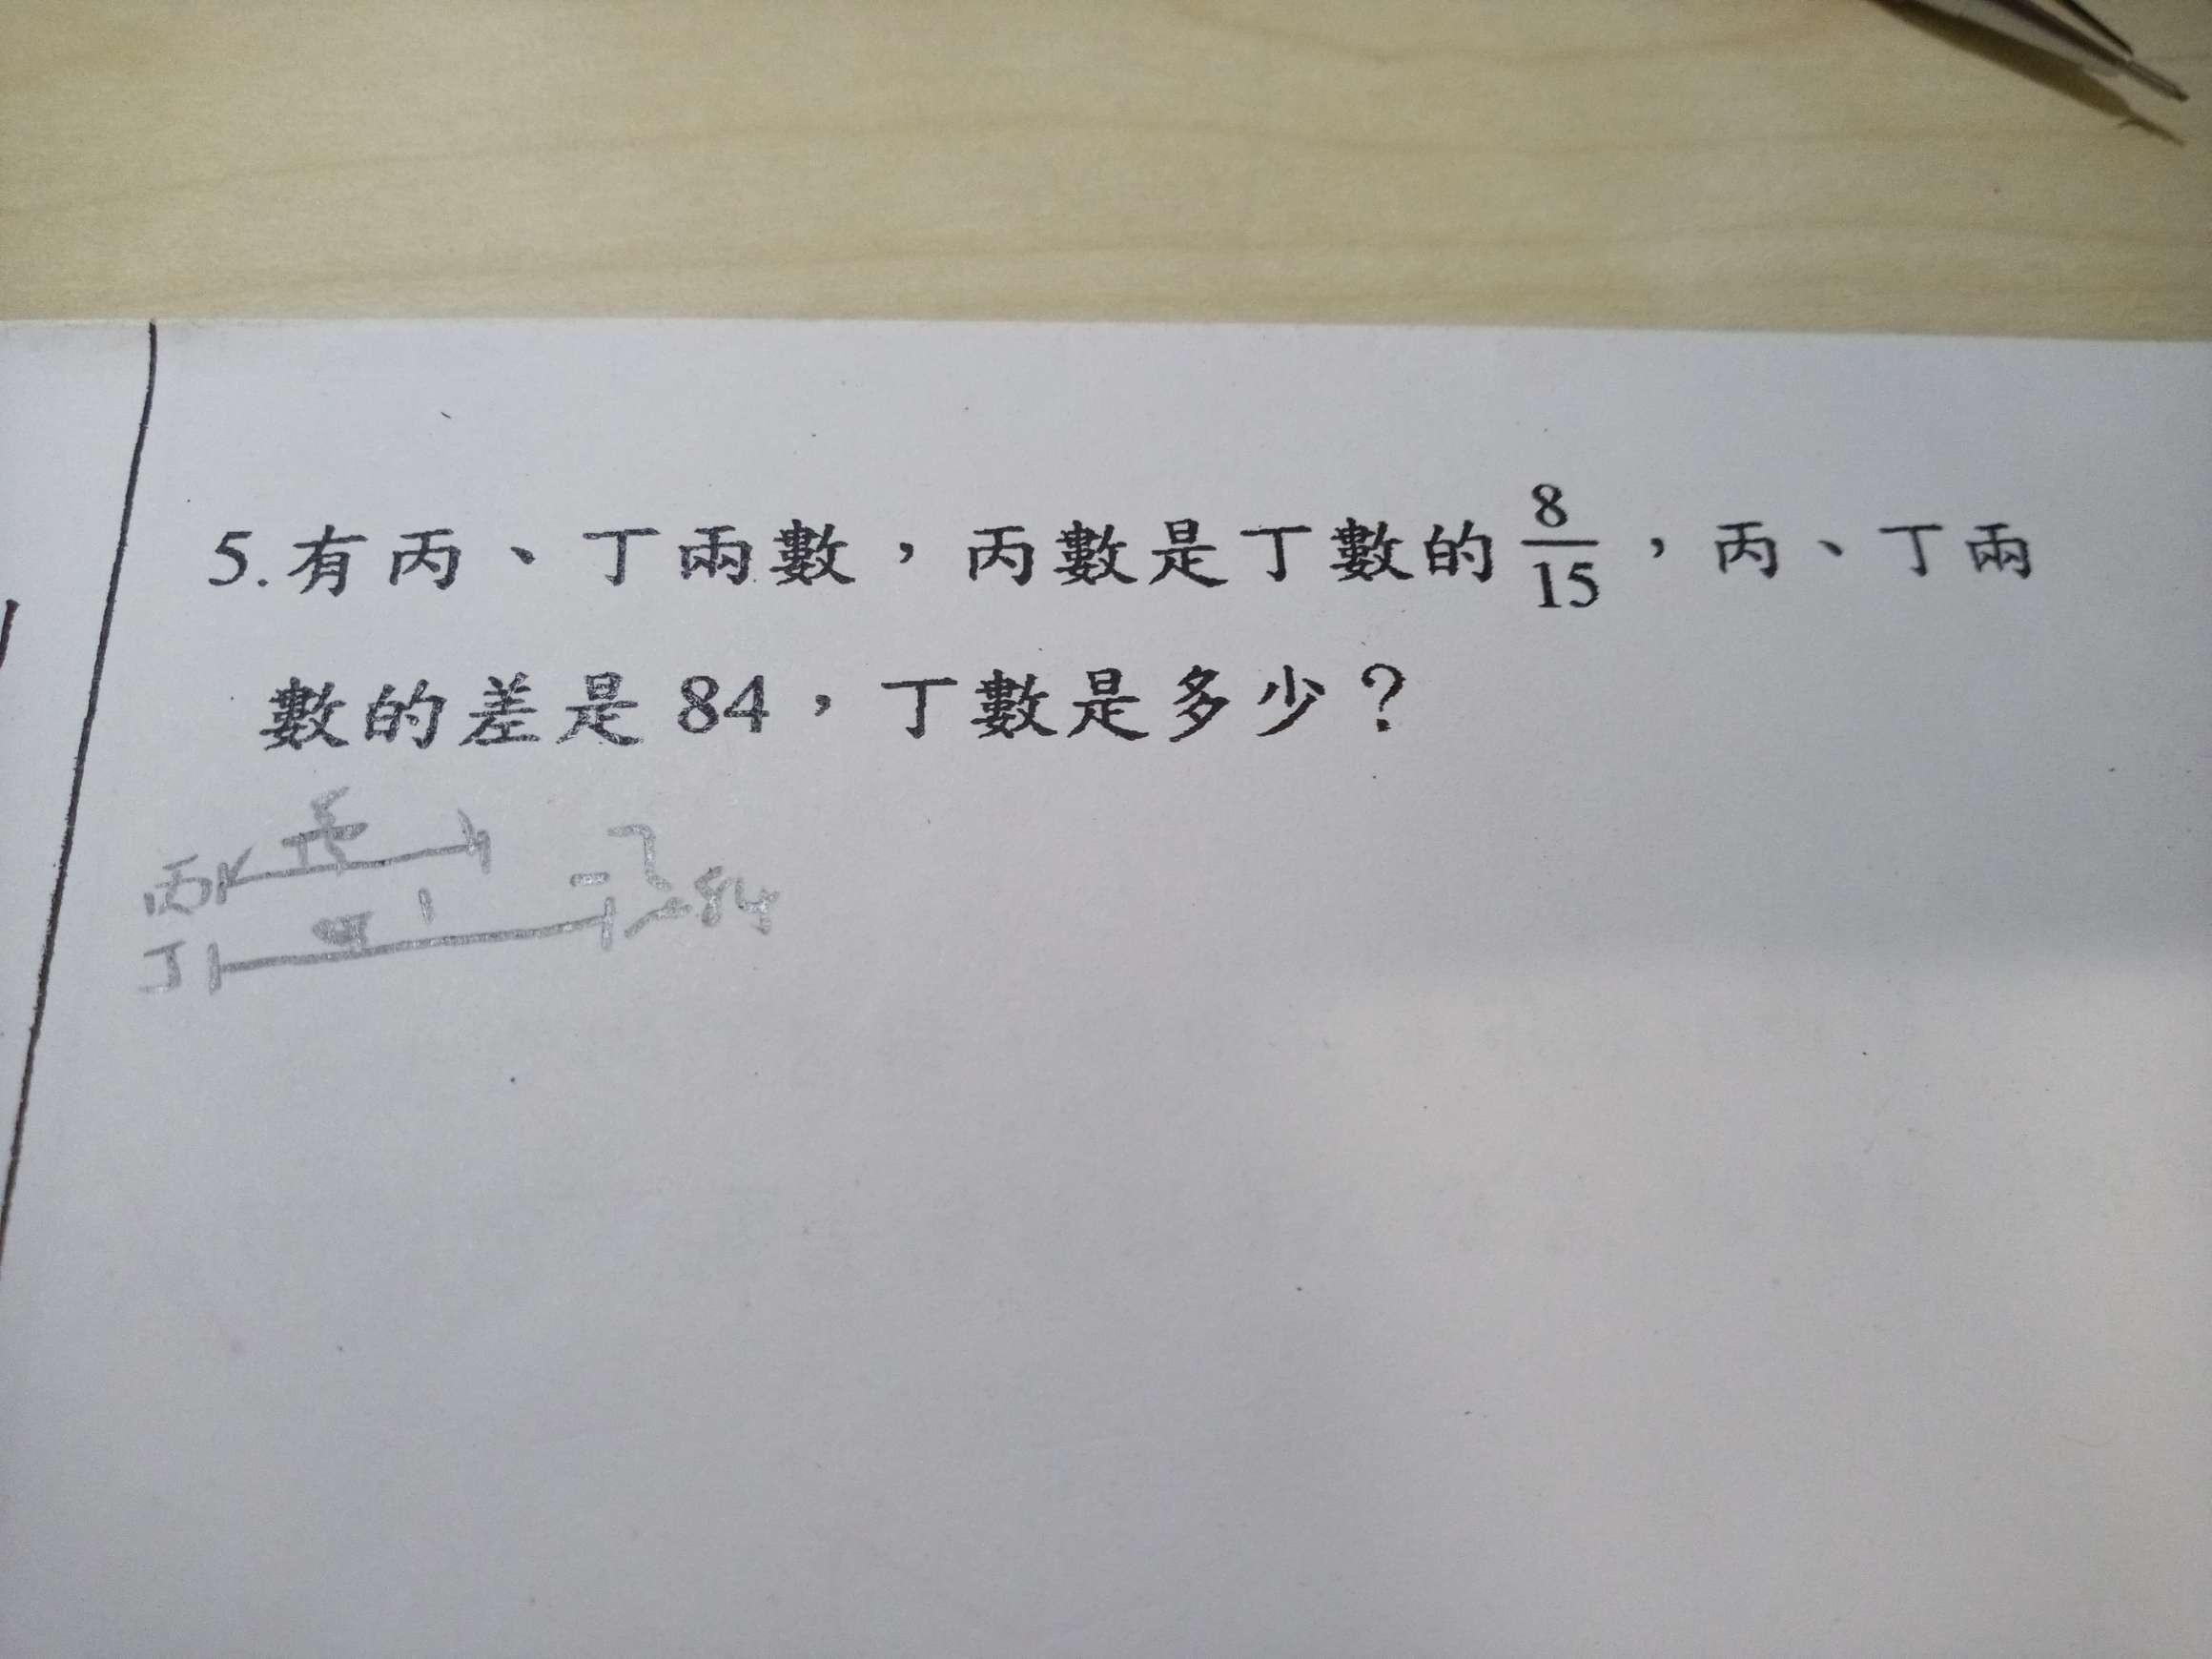 5.有丙、丁兩數，丙數是丁數的8/15，丙、丁兩
數的差是84，丁數是多少？
丙 8/15
丁 1 84